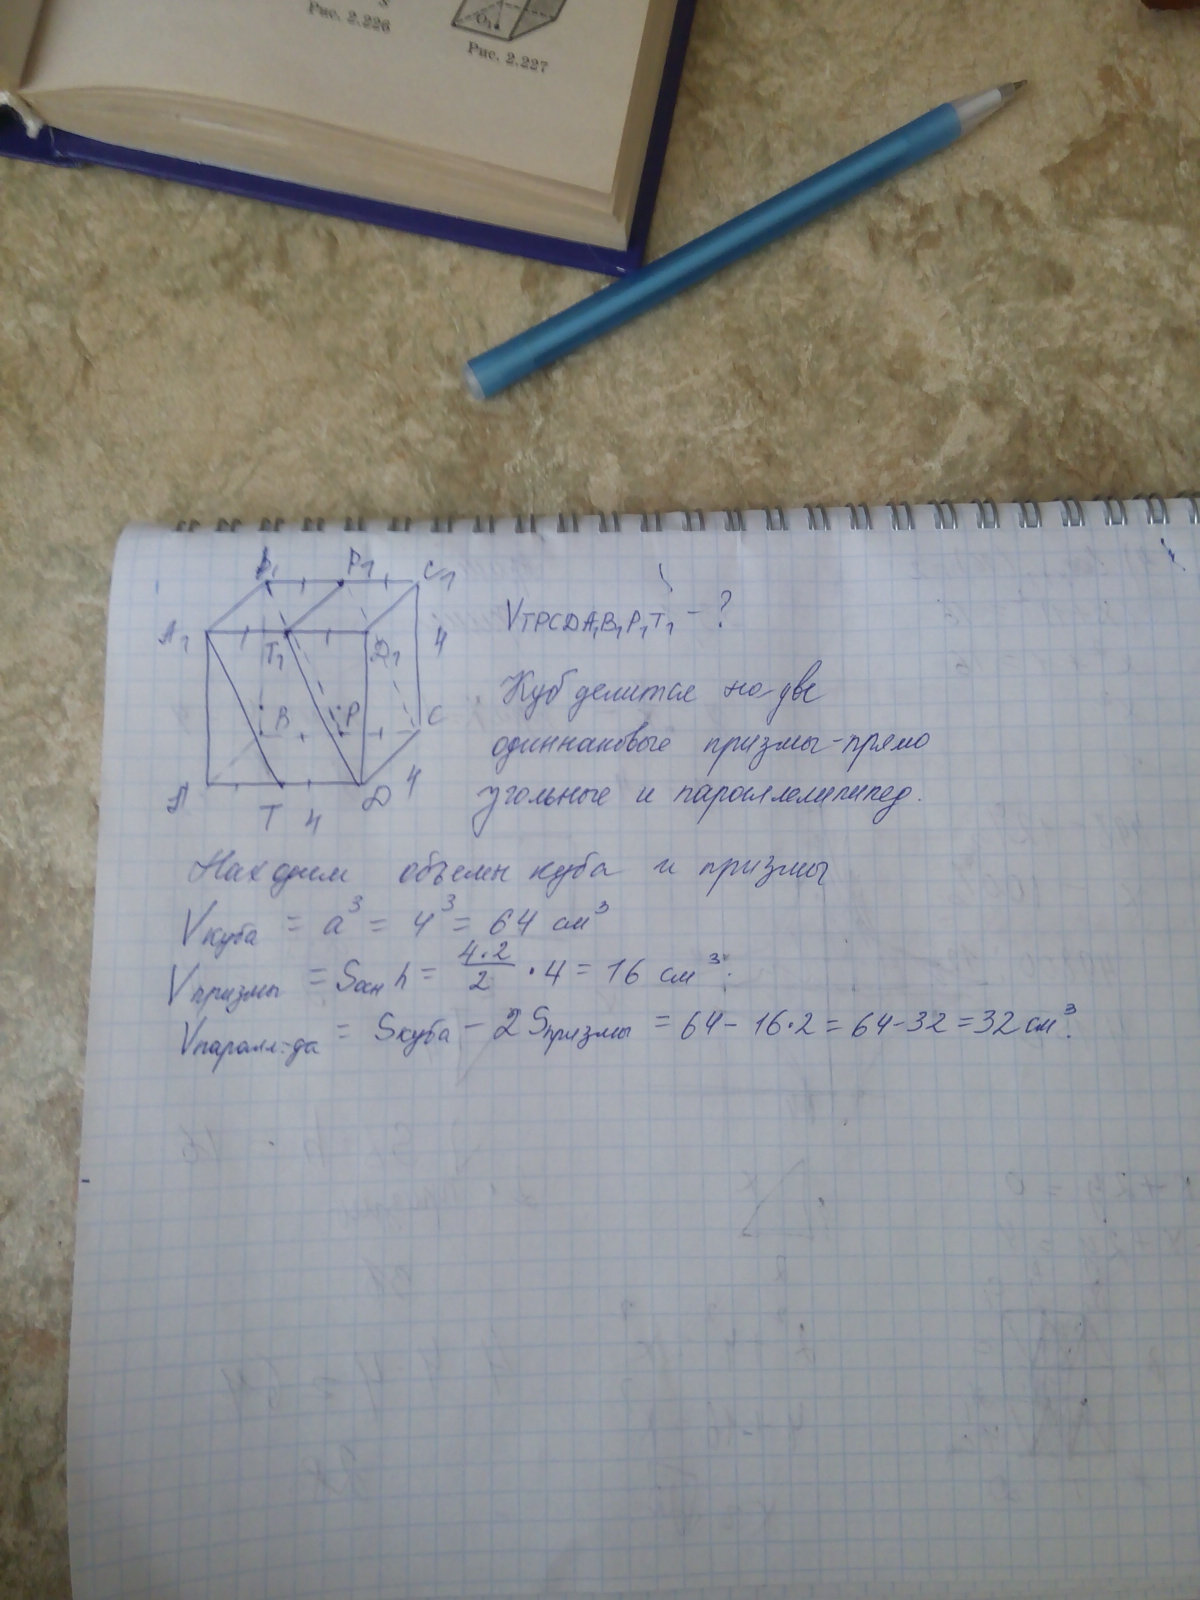 Рис. 2.226
O₁
Рис. 2.227
B₁ P₁ C₁
A₁ T₁ D₁ 4
B P C
A T 4 D 4
VTPCDA₁B₁P₁T₁ - ?
Куб делится на две
одиннаковые призмы-прямо
угольные и параллелипипед.
Находим объемы куба и призмы
Vкуба = a³ = 4³ = 64 см³
Vпризмы = Sосн h = 4·2/2 · 4 = 16 см³.
Vпаралл-да = Sкуба - 2 Sпризмы = 64 - 16·2 = 64-32 = 32 см³.